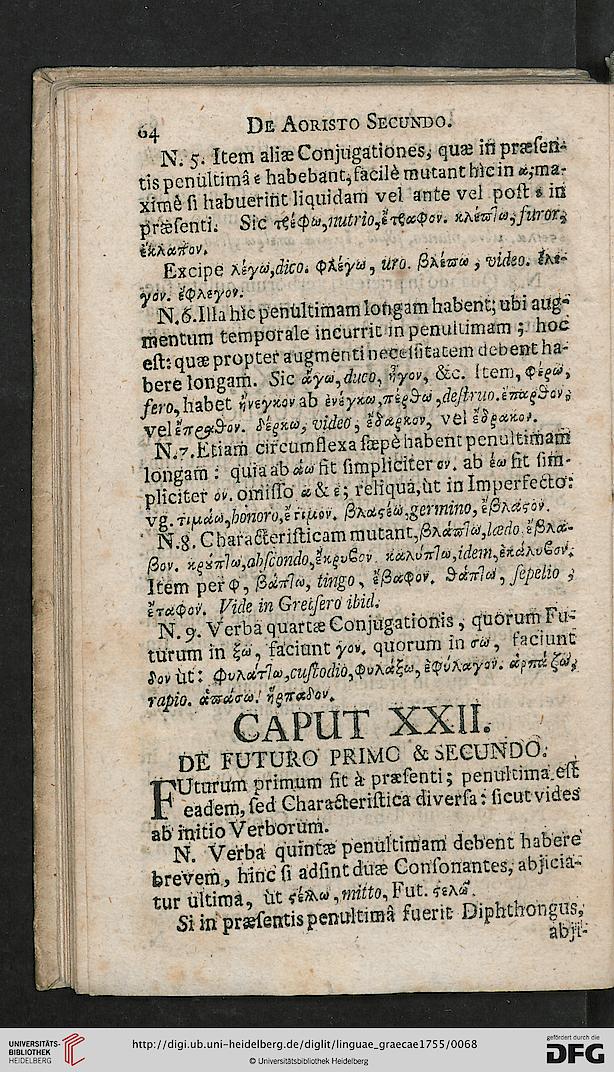 64 DE AORISTO SECUNDO.
N. 5. Item aliæ Conjugationes, quæ in præsen-
tis penultimâ ε habebant, facilè mutant hîc in α; ma-
ximè si habuerint liquidam vel ante vel post ε in
præsenti. Sic τρέφω, nutrio, ἔτραφον. κλέπτω, furor,
ἔκλαπον.
Excipe λέγω, dico. φλέγω, uro. βλέπω, video. ἔλε-
γον. ἔφλεγον.
N. 6. Illa hîc penultimam longam habent; ubi aug-
mentum temporale incurrit in penultimam; hoc
est: quæ propter augmenti necessitatem debent ha-
bere longam. Sic ἄγω, duco, ἦγον, &c. Item, φέρω,
fero, habet ἤνεγκον ab ἐνέγκω, πέρθω, destruo. ἔπαρθον,
vel ἔπραθον. δέρκω, video, ἔδαρκον, vel ἔδρακον.
N. 7. Etiam circumflexa sæpè habent penultimam
longam: quia ab άω fit simpliciter ον. ab έω fit sim-
pliciter ον. omisso α & ε; reliqua, ùt in Imperfecto:
vg. τιμάω, honoro, ἔτιμον. βλαςέω, germino, ἔβλαςον.
N. 8. Characteristicam mutant, βλάπτω, lædo ἔβλα-
βον. κρύπτω, abscondo, ἔκρυβον. καλύπτω, idem, ἐκάλυβον.
Item per φ, βάπτω, tingo, ἔβαφον. θάπτω, sepelio,
ἔταφον. Vide in Gretsero ibid.
N. 9. Verba quartæ Conjugationis, quorum Fu-
turum in ξω, faciunt γον. quorum in σω, faciunt
δον ùt: φυλάττω, custodio, φυλάξω, ἐφύλαγον. ἁρπάζω,
rapio. ἁπάσω. ἥρπαδον.
CAPUT XXII.
DE FUTURO PRIMO & SECUNDO.
FUturum primum fit à præsenti; penultima est
eadem, sed Characteristica diversa: sicut vides
ab initio Verborum.
N. Verba quintæ penultimam debent habere
brevem, hinc si adsint duæ Consonantes, abjicia-
tur ultima, ùt ςέλλω, mitto, Fut. ςελῶ.
Si in præsentis penultimâ fuerit Diphthongus,
abji-
UNIVERSITÄTS-
BIBLIOTHEK
HEIDELBERG
http://digi.ub.uni-heidelberg.de/diglit/linguae_graecae1755/0068
© Universitätsbibliothek Heidelberg
gefördert durch die
DFG